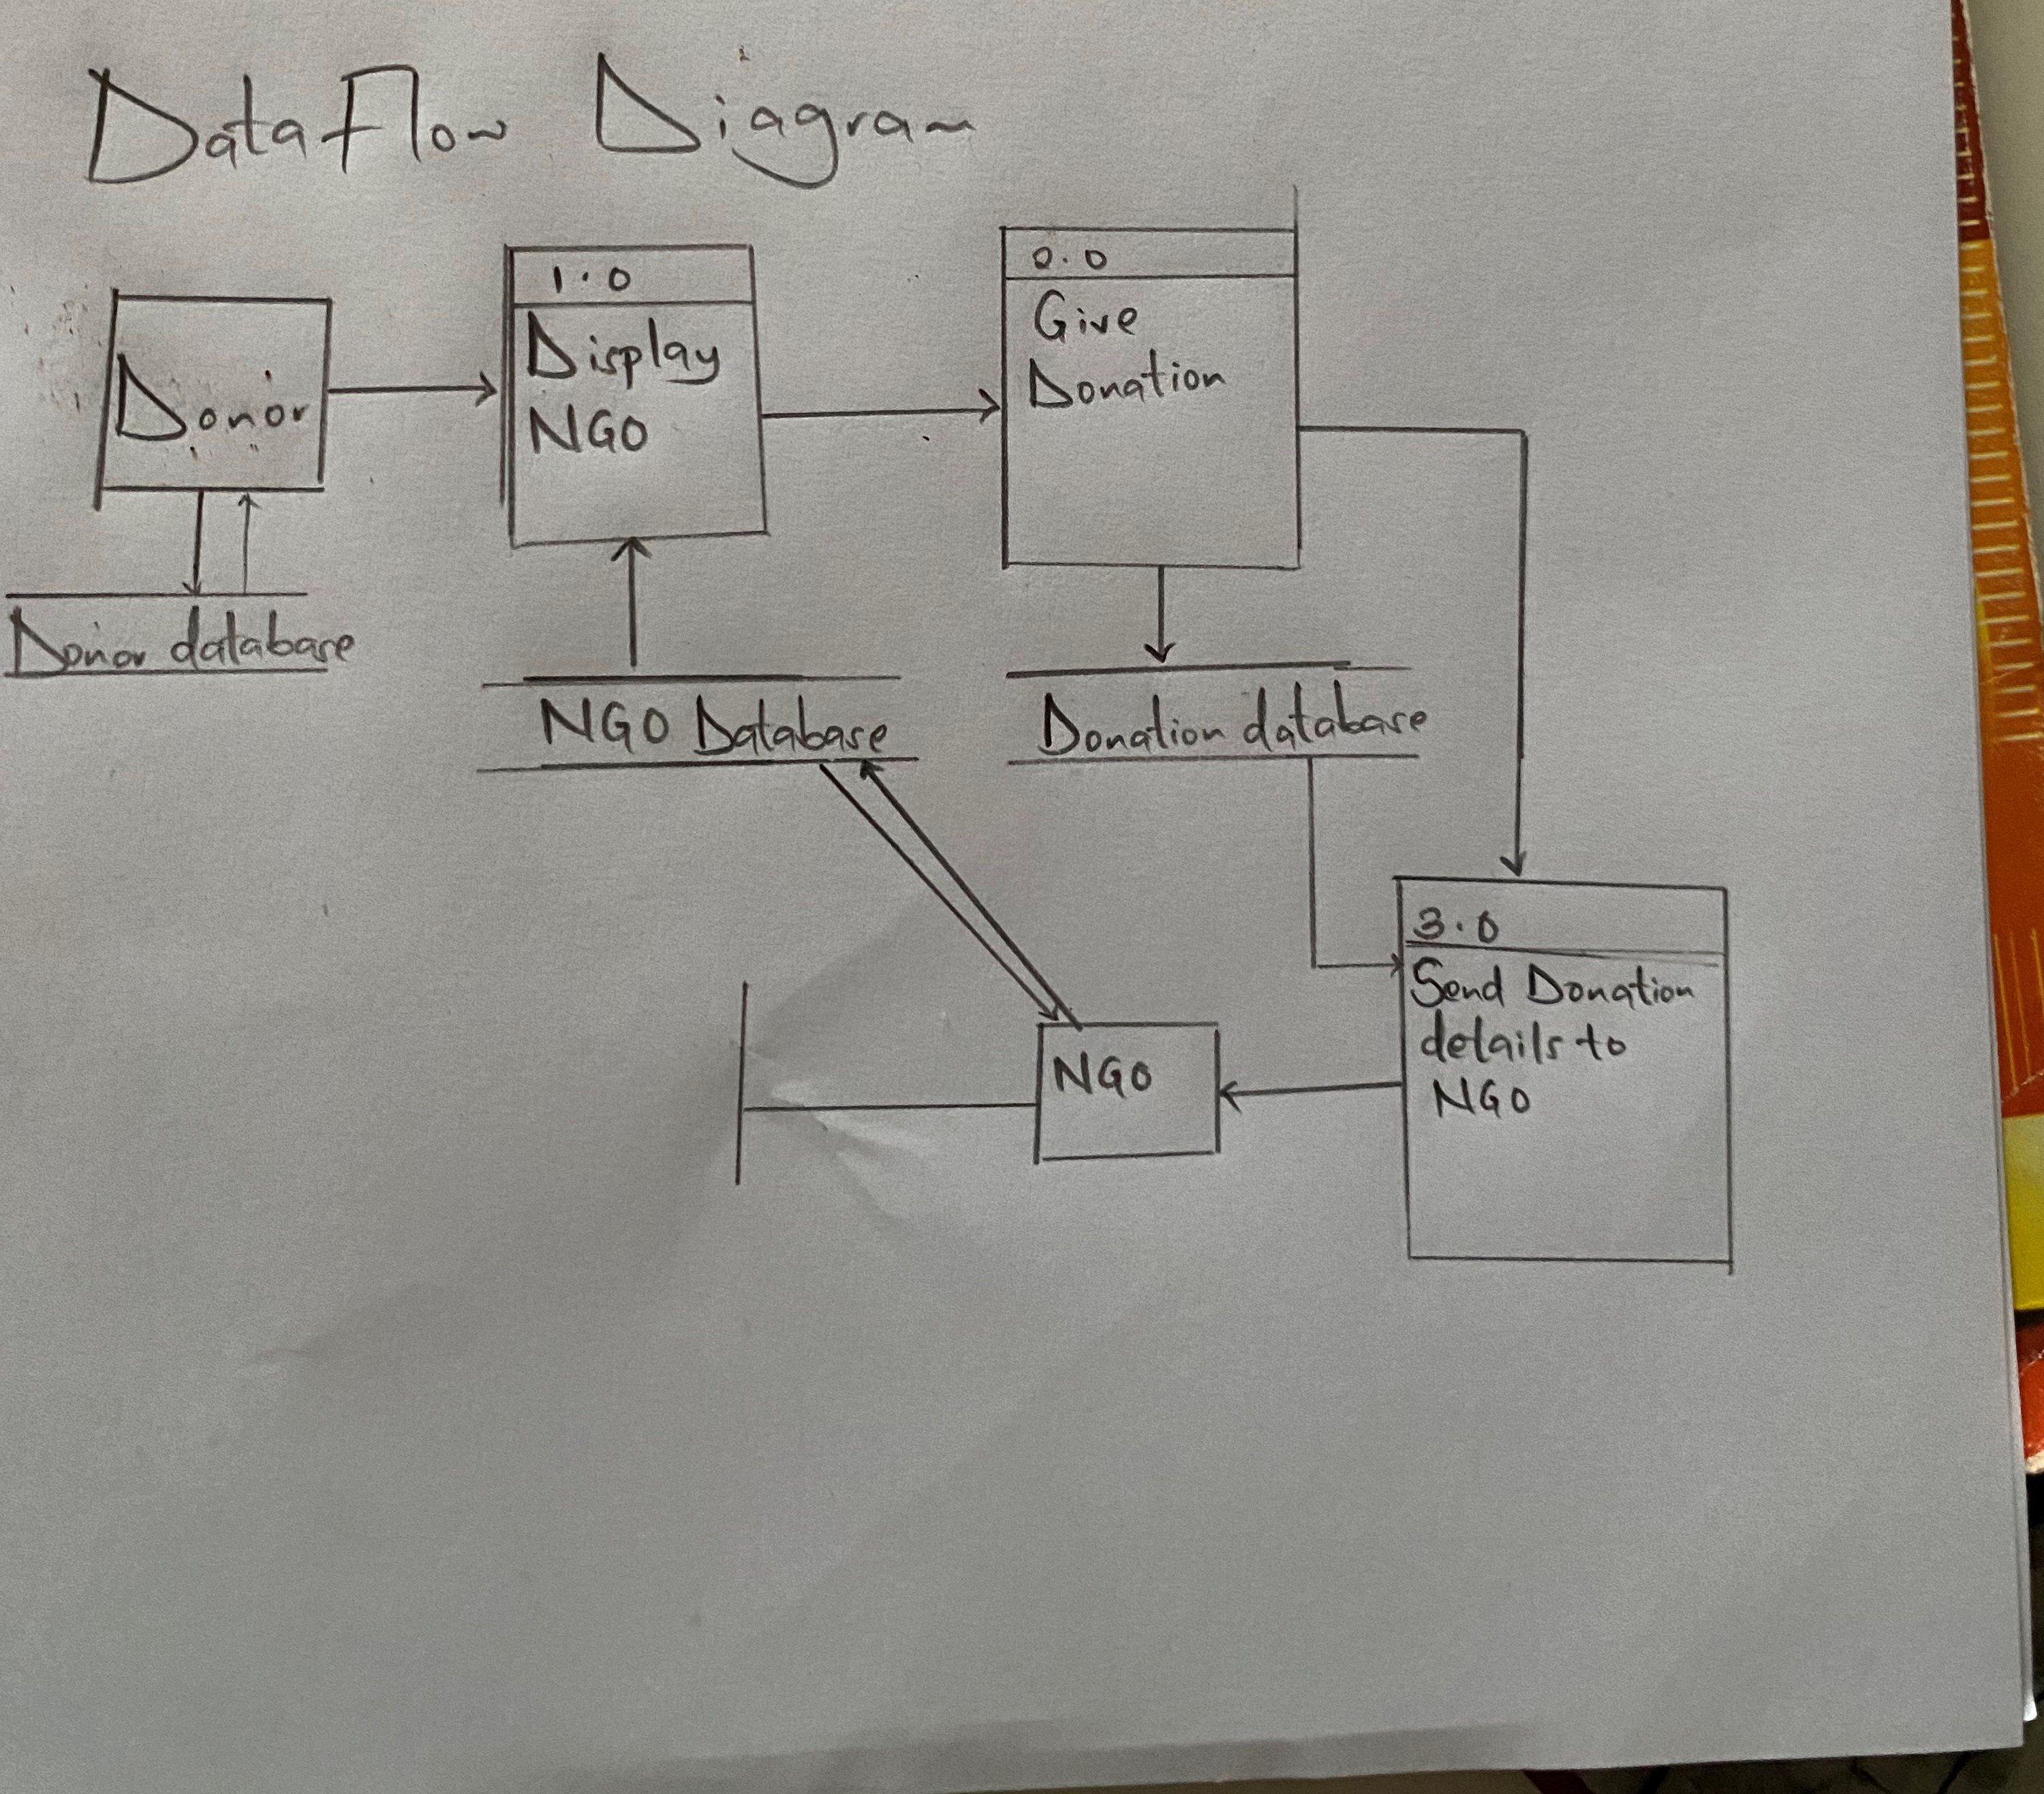 Data Flow Diagram
Donor
1.0
Display
NGO
0.0
Give
Donation
Donor database
NGO Database
Donation database
3.0
Send Donation
details to
NGO
NGO